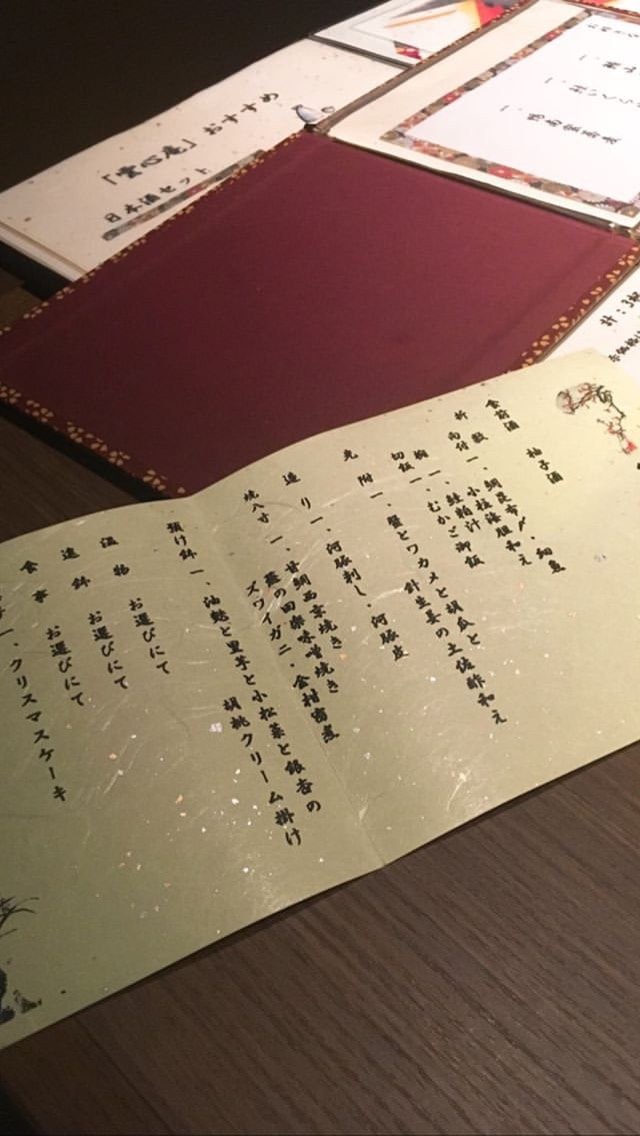 「雲心庵」おすすめ
日本酒セット
食前酒 柚子酒
折敷
向付 一、鯛昆布〆、細魚
小柱海胆和え
椀 一、鮭粕汁
切飯 一、むかご御飯
先附 一、蟹とワカメと胡瓜と
針生姜の土佐酢和え
造り 一、河豚刺し、河豚皮
焼八寸 一、甘鯛西京焼き
蕪の田楽味噌焼き
ズワイガニ、金柑蜜煮
預け鉢 一、油麩と里芋と小松菜と銀杏の
胡桃クリーム掛け
温物 お選びにて
進鉢 お選びにて
食事 お選びにて
一、クリスマスケーキ